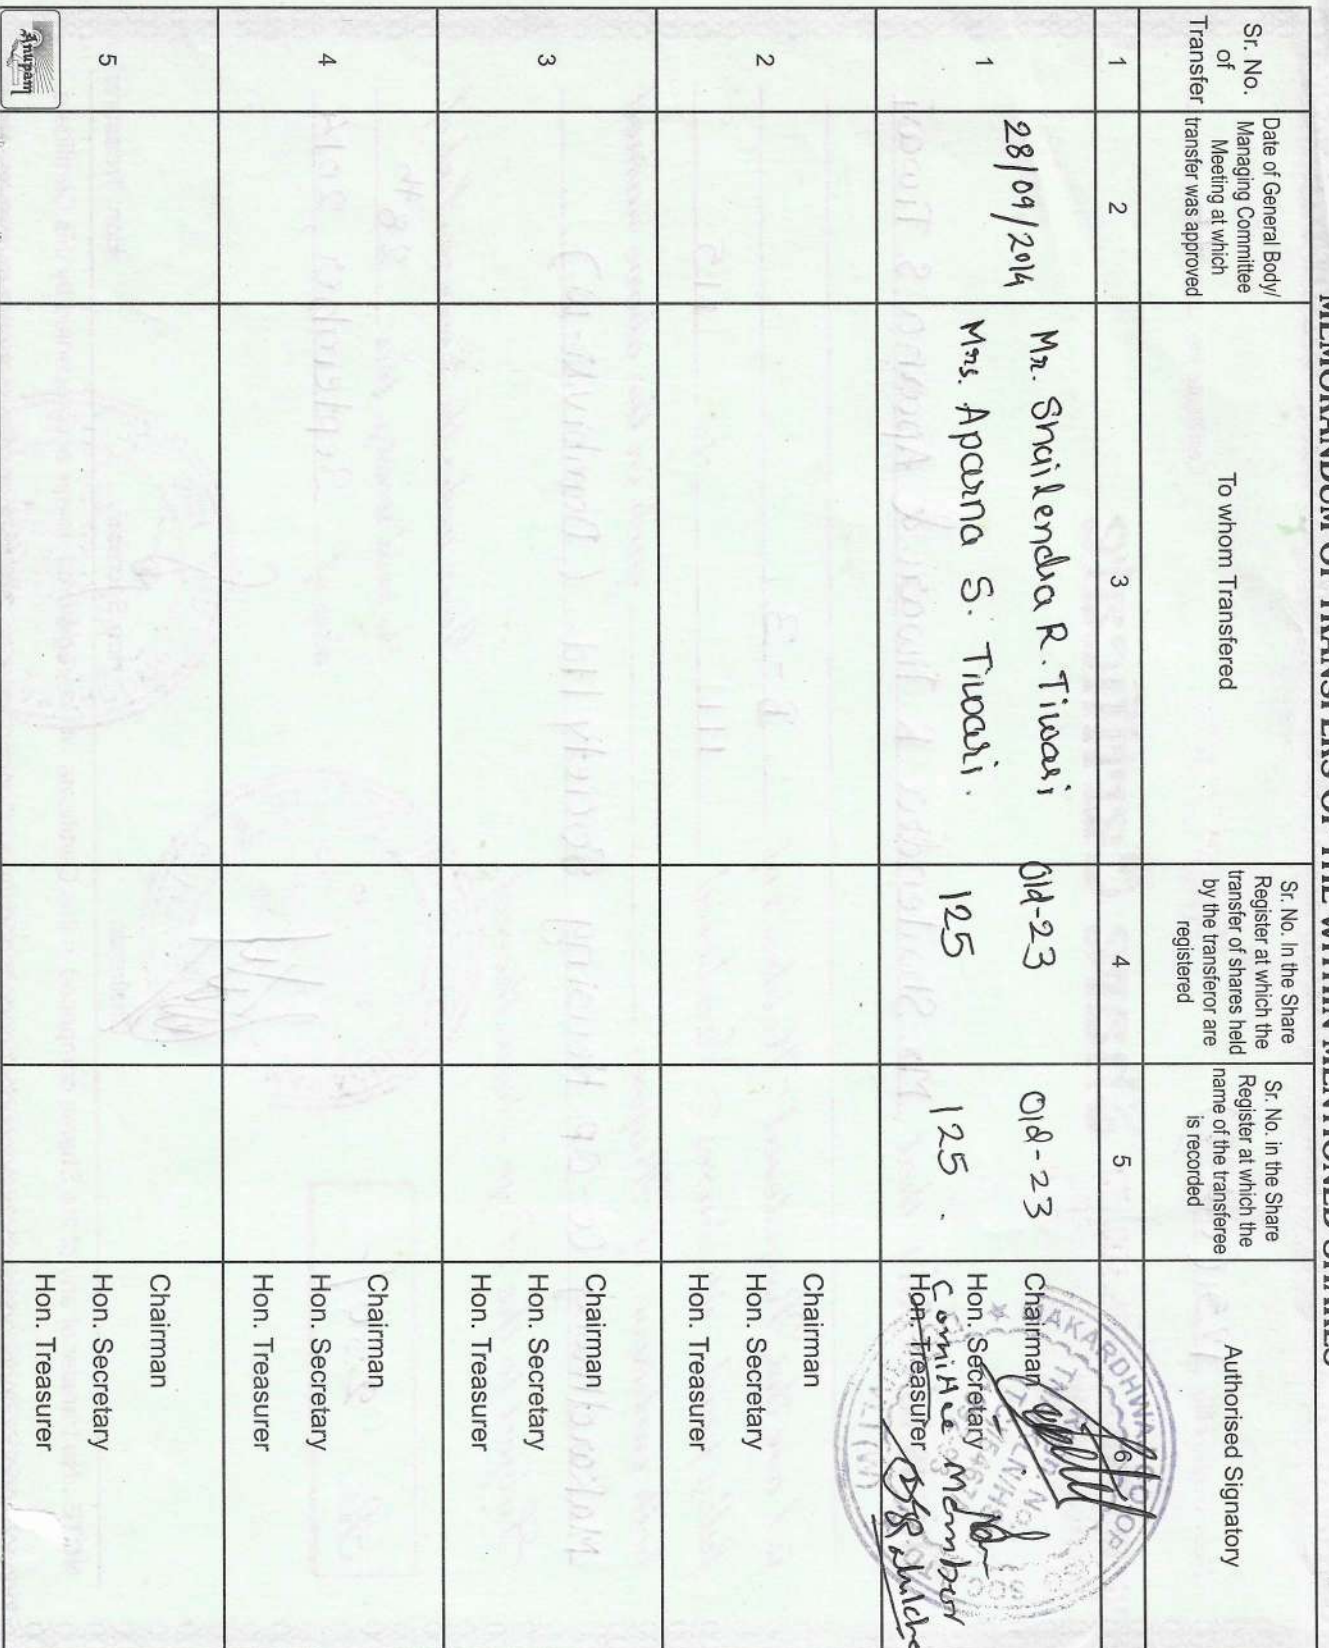 MEMORANDUM OF TRANSFERS OF THE WITHIN MENTIONED SHARES
Sr. No. of Transfer
Date of General Body/ Managing Committee Meeting at which transfer was approved
To whom Transfered
Sr. No. In the Share Register at which the transfer of shares held by the transferor are registered
Sr. No. in the Share Register at which the name of the transferee is recorded
Authorised Signatory
1 2 3 4 5 6
1 28/09/2014 Mr. Shailendra R. Tiwari Old-23 Old-23 Chairman
Mrs. Aparna S. Tiwari. 125 125. Hon. Secretary
Comittee Member
Hon. Treasurer
MAKARDHWAJ CO-OP
2 Chairman
Hon. Secretary
Hon. Treasurer
3 Chairman
Hon. Secretary
Hon. Treasurer
4 Chairman
Hon. Secretary
Hon. Treasurer
5 Chairman
Hon. Secretary
Hon. Treasurer
Anupam